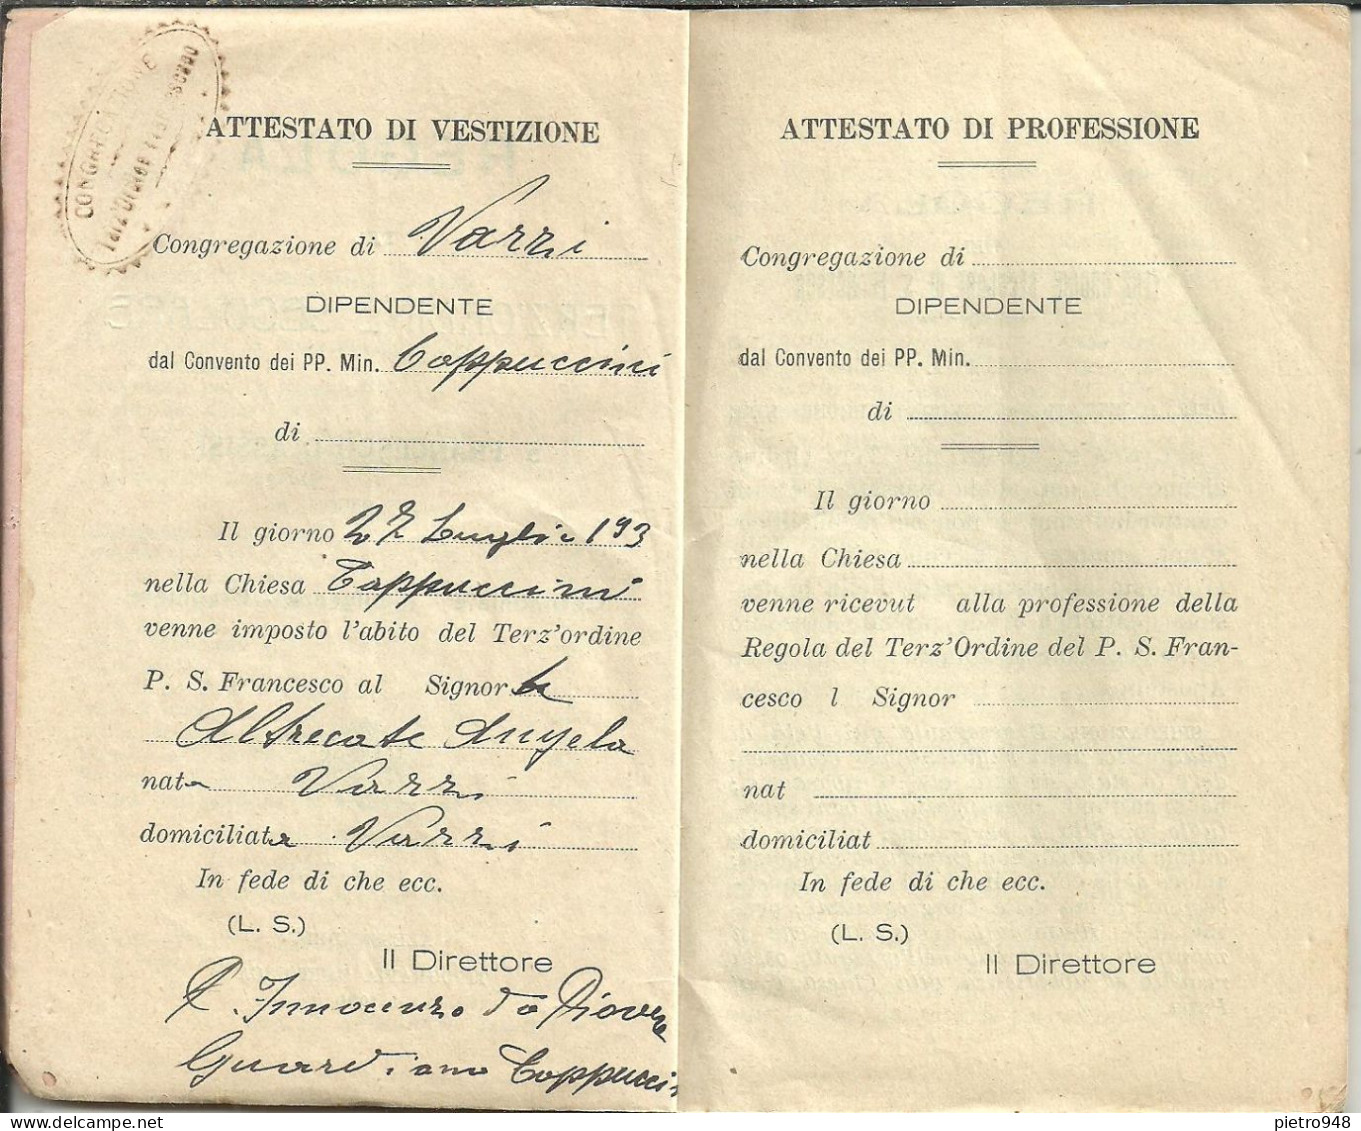 CONGREGAZIONE
ATTESTATO DI VESTIZIONE
Congregazione di Varzi
DIPENDENTE
dal Convento dei PP. Min. Cappuccini
di
Il giorno 27 Luglio 193
nella Chiesa Cappuccini
venne imposto l'abito del Terz'ordine
P. S. Francesco al Signor la
Altrecate Angela
nata Varzi
domiciliata Varzi
In fede di che ecc.
(L. S.)
Il Direttore
P. Innocenzo da Piovera
Guardiano Cappuccin
ATTESTATO DI PROFESSIONE
Congregazione di
DIPENDENTE
dal Convento dei PP. Min.
di
Il giorno
nella Chiesa
venne ricevut alla professione della
Regola del Terz'Ordine del P. S. Fran-
cesco l Signor
nat
domiciliat
In fede di che ecc.
(L. S.)
Il Direttore
delcampe.net
pietro948